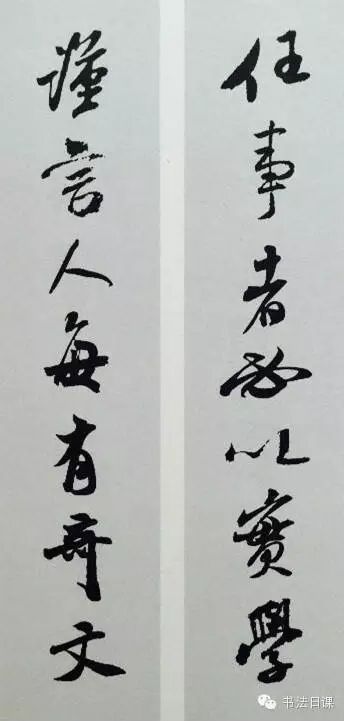 任事者必以實學
謹言人每有奇文
书法日课